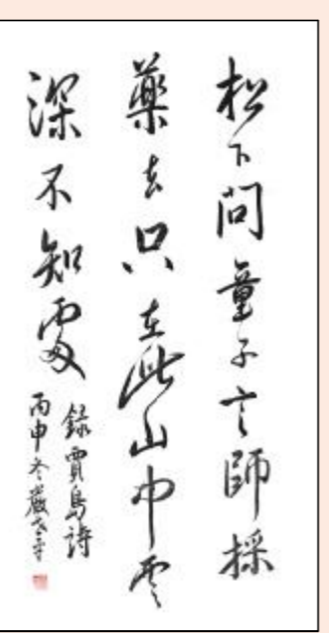 松下問童子言師採
藥去只在此山中雲
深不知處
錄賈島詩
丙申冬嚴